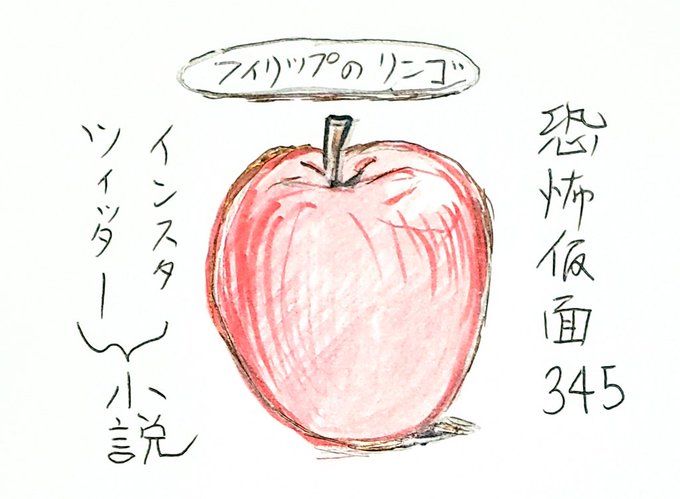 フィリップのリンゴ
恐怖仮面345
インスタ
ツイッター
小説